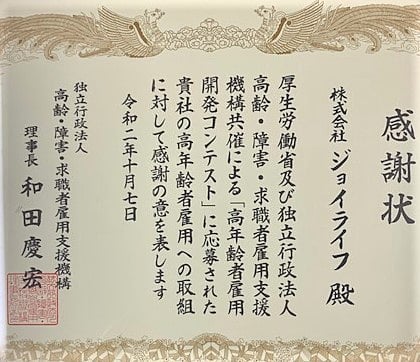 感謝状
株式会社 ジョイライフ 殿
厚生労働省及び独立行政法人
高齢・障害・求職者雇用支援
機構共催による「高年齢者雇用
開発コンテスト」に応募された
貴社の高年齢者雇用への取組
に対して感謝の意を表します
令和二年十月七日
独立行政法人
高齢・障害・求職者雇用支援機構
理事長 和田慶宏